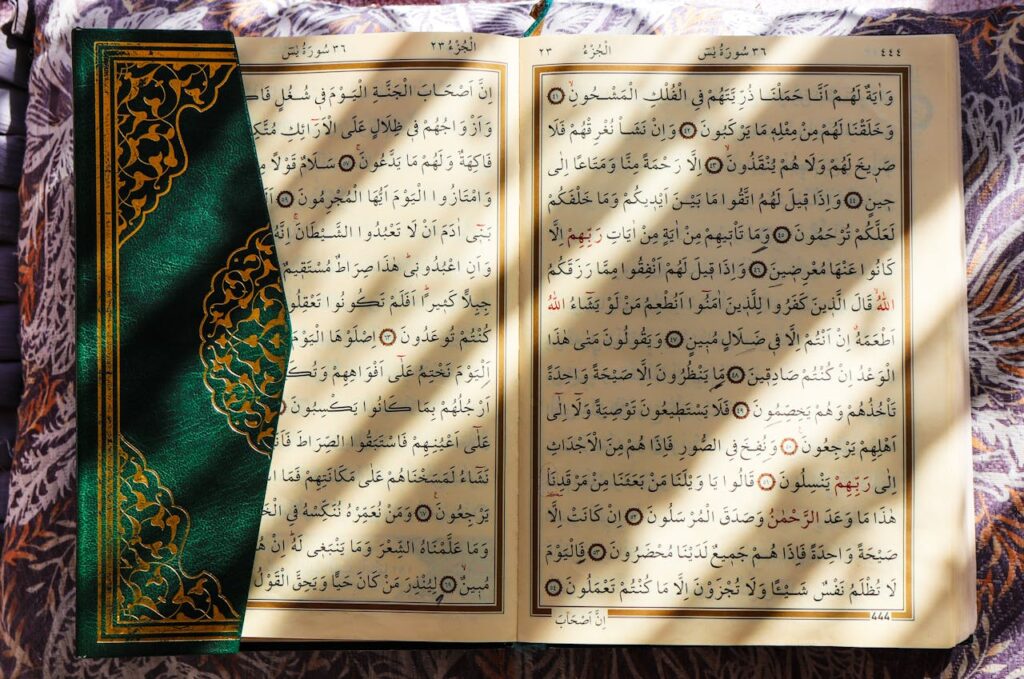 ٤٤٤ ٣٦ سُورَةُ يٰسٓ اَلْجُزْءُ ٢٣
وَاٰيَةٌ لَهُمْ اَنَّا حَمَلْنَا ذُرِّيَّتَهُمْ فِي الْفُلْكِ الْمَشْحُونِ ٤١
وَخَلَقْنَا لَهُمْ مِنْ مِثْلِهِ مَا يَرْكَبُونَ ٤٢ وَاِنْ نَشَأْ نُغْرِقْهُمْ فَلَا
صَرِيخَ لَهُمْ وَلَا هُمْ يُنْقَذُونَ ٤٣ اِلَّا رَحْمَةً مِنَّا وَمَتَاعًا اِلٰى
حِينٍ ٤٤ وَاِذَا قِيلَ لَهُمُ اتَّقُوا مَا بَيْنَ اَيْدِيكُمْ وَمَا خَلْفَكُمْ
لَعَلَّكُمْ تُرْحَمُونَ ٤٥ وَمَا تَأْتِيهِمْ مِنْ اٰيَةٍ مِنْ اٰيَاتِ رَبِّهِمْ اِلَّا
كَانُوا عَنْهَا مُعْرِضِينَ ٤٦ وَاِذَا قِيلَ لَهُمْ اَنْفِقُوا مِمَّا رَزَقَكُمُ
اللّٰهُ قَالَ الَّذِينَ كَفَرُوا لِلَّذِينَ اٰمَنُٓوا اَنُطْعِمُ مَنْ لَوْ يَشَٓاءُ اللّٰهُ
اَطْعَمَهُ اِنْ اَنْتُمْ اِلَّا فِي ضَلَالٍ مُبِينٍ ٤٧ وَيَقُولُونَ مَتٰى هٰذَا
الْوَعْدُ اِنْ كُنْتُمْ صَادِقِينَ ٤٨ مَا يَنْظُرُونَ اِلَّا صَيْحَةً وَاحِدَةً
تَأْخُذُهُمْ وَهُمْ يَخِصِّمُونَ ٤٩ فَلَا يَسْتَطِيعُونَ تَوْصِيَةً وَلَٓا اِلٰٓى
اَهْلِهِمْ يَرْجِعُونَ ٥٠ وَنُفِخَ فِي الصُّورِ فَاِذَا هُمْ مِنَ الْاَجْدَاثِ
اِلٰى رَبِّهِمْ يَنْسِلُونَ ٥١ قَالُوا يَا وَيْلَنَا مَنْ بَعَثَنَا مِنْ مَرْقَدِنَا
هٰذَا مَا وَعَدَ الرَّحْمٰنُ وَصَدَقَ الْمُرْسَلُونَ ٥٢ اِنْ كَانَتْ اِلَّا
صَيْحَةً وَاحِدَةً فَاِذَا هُمْ جَمِيعٌ لَدَيْنَا مُحْضَرُونَ ٥٣ فَالْيَوْمَ
لَا تُظْلَمُ نَفْسٌ شَيْـًٔا وَلَا تُجْزَوْنَ اِلَّا مَا كُنْتُمْ تَعْمَلُونَ ٥٤
444 اِنَّ اَصْحَابَ
اَلْجُزْءُ ٢٣ ٣٦ سُورَةُ يٰسٓ
اِنَّ اَصْحَابَ الْجَنَّةِ الْيَوْمَ فِي شُغُلٍ
وَاَزْوَاجُهُمْ فِي ظِلَالٍ عَلَى الْاَرَٓائِكِ
فَاكِهَةٌ وَلَهُمْ مَا يَدَّعُونَ ٥٧ سَلَامٌ قَوْلًا
وَامْتَازُوا الْيَوْمَ اَيُّهَا الْمُجْرِمُونَ ٥٩
بَنِٓي اٰدَمَ اَنْ لَا تَعْبُدُوا الشَّيْطَانَ اِنَّهُ
وَاَنِ اعْبُدُونِي هٰذَا صِرَاطٌ مُسْتَقِيمٌ
جِبِلًّا كَثِيرًا اَفَلَمْ تَكُونُوا
كُنْتُمْ تُوعَدُونَ ٦٣ اِصْلَوْهَا الْيَوْمَ
اَلْيَوْمَ نَخْتِمُ عَلٰٓى اَفْوَاهِهِمْ
اَرْجُلُهُمْ بِمَا كَانُوا يَكْسِبُونَ
عَلٰٓى اَعْيُنِهِمْ فَاسْتَبَقُوا الصِّرَاطَ
نَشَٓاءُ لَمَسَخْنَاهُمْ عَلٰى مَكَانَتِهِمْ فَمَا
يَرْجِعُونَ ٦٧ وَمَنْ نُعَمِّرْهُ نُنَكِّسْهُ فِي
وَمَا عَلَّمْنَاهُ الشِّعْرَ وَمَا يَنْبَغِي لَهُ اِنْ
مُبِينٌ ٦٩ لِيُنْذِرَ مَنْ كَانَ حَيًّا وَيَحِقَّ الْقَوْلُ